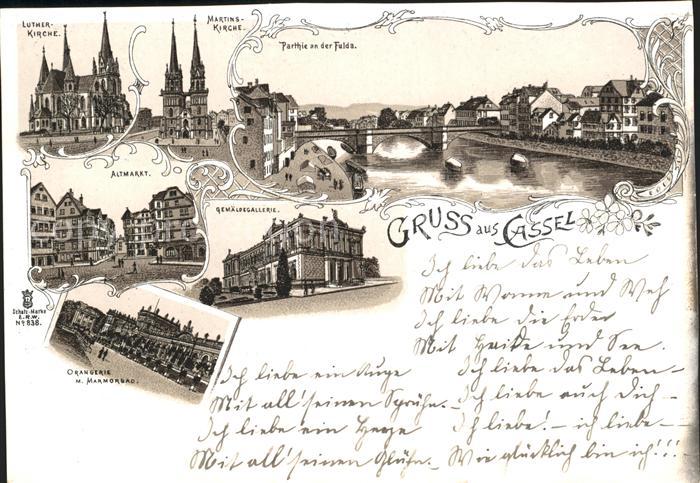 LUTHER-
KIRCHE.
MARTINS-
KIRCHE.
Parthie an der Fulda.
ALTMARKT.
GEMÄLDEGALLERIE.
GRUSS aus CASSEL
Schutz-Marke
E.R.W.
No 838.
ORANGERIE
M. MARMORBAD.
Ich liebe das Leben
Mit Wonne und Weh
Ich liebe die Erde
Mit Heide und See.
Ich liebe ein Auge
Mit all' seinen Sprühn. –
Ich liebe ein Herze
Mit all' seinen Glühn. –
Ich liebe das Leben –
Ich liebe auch Dich –
Ich liebe! – ich liebe –
Wie glücklich bin ich!!!